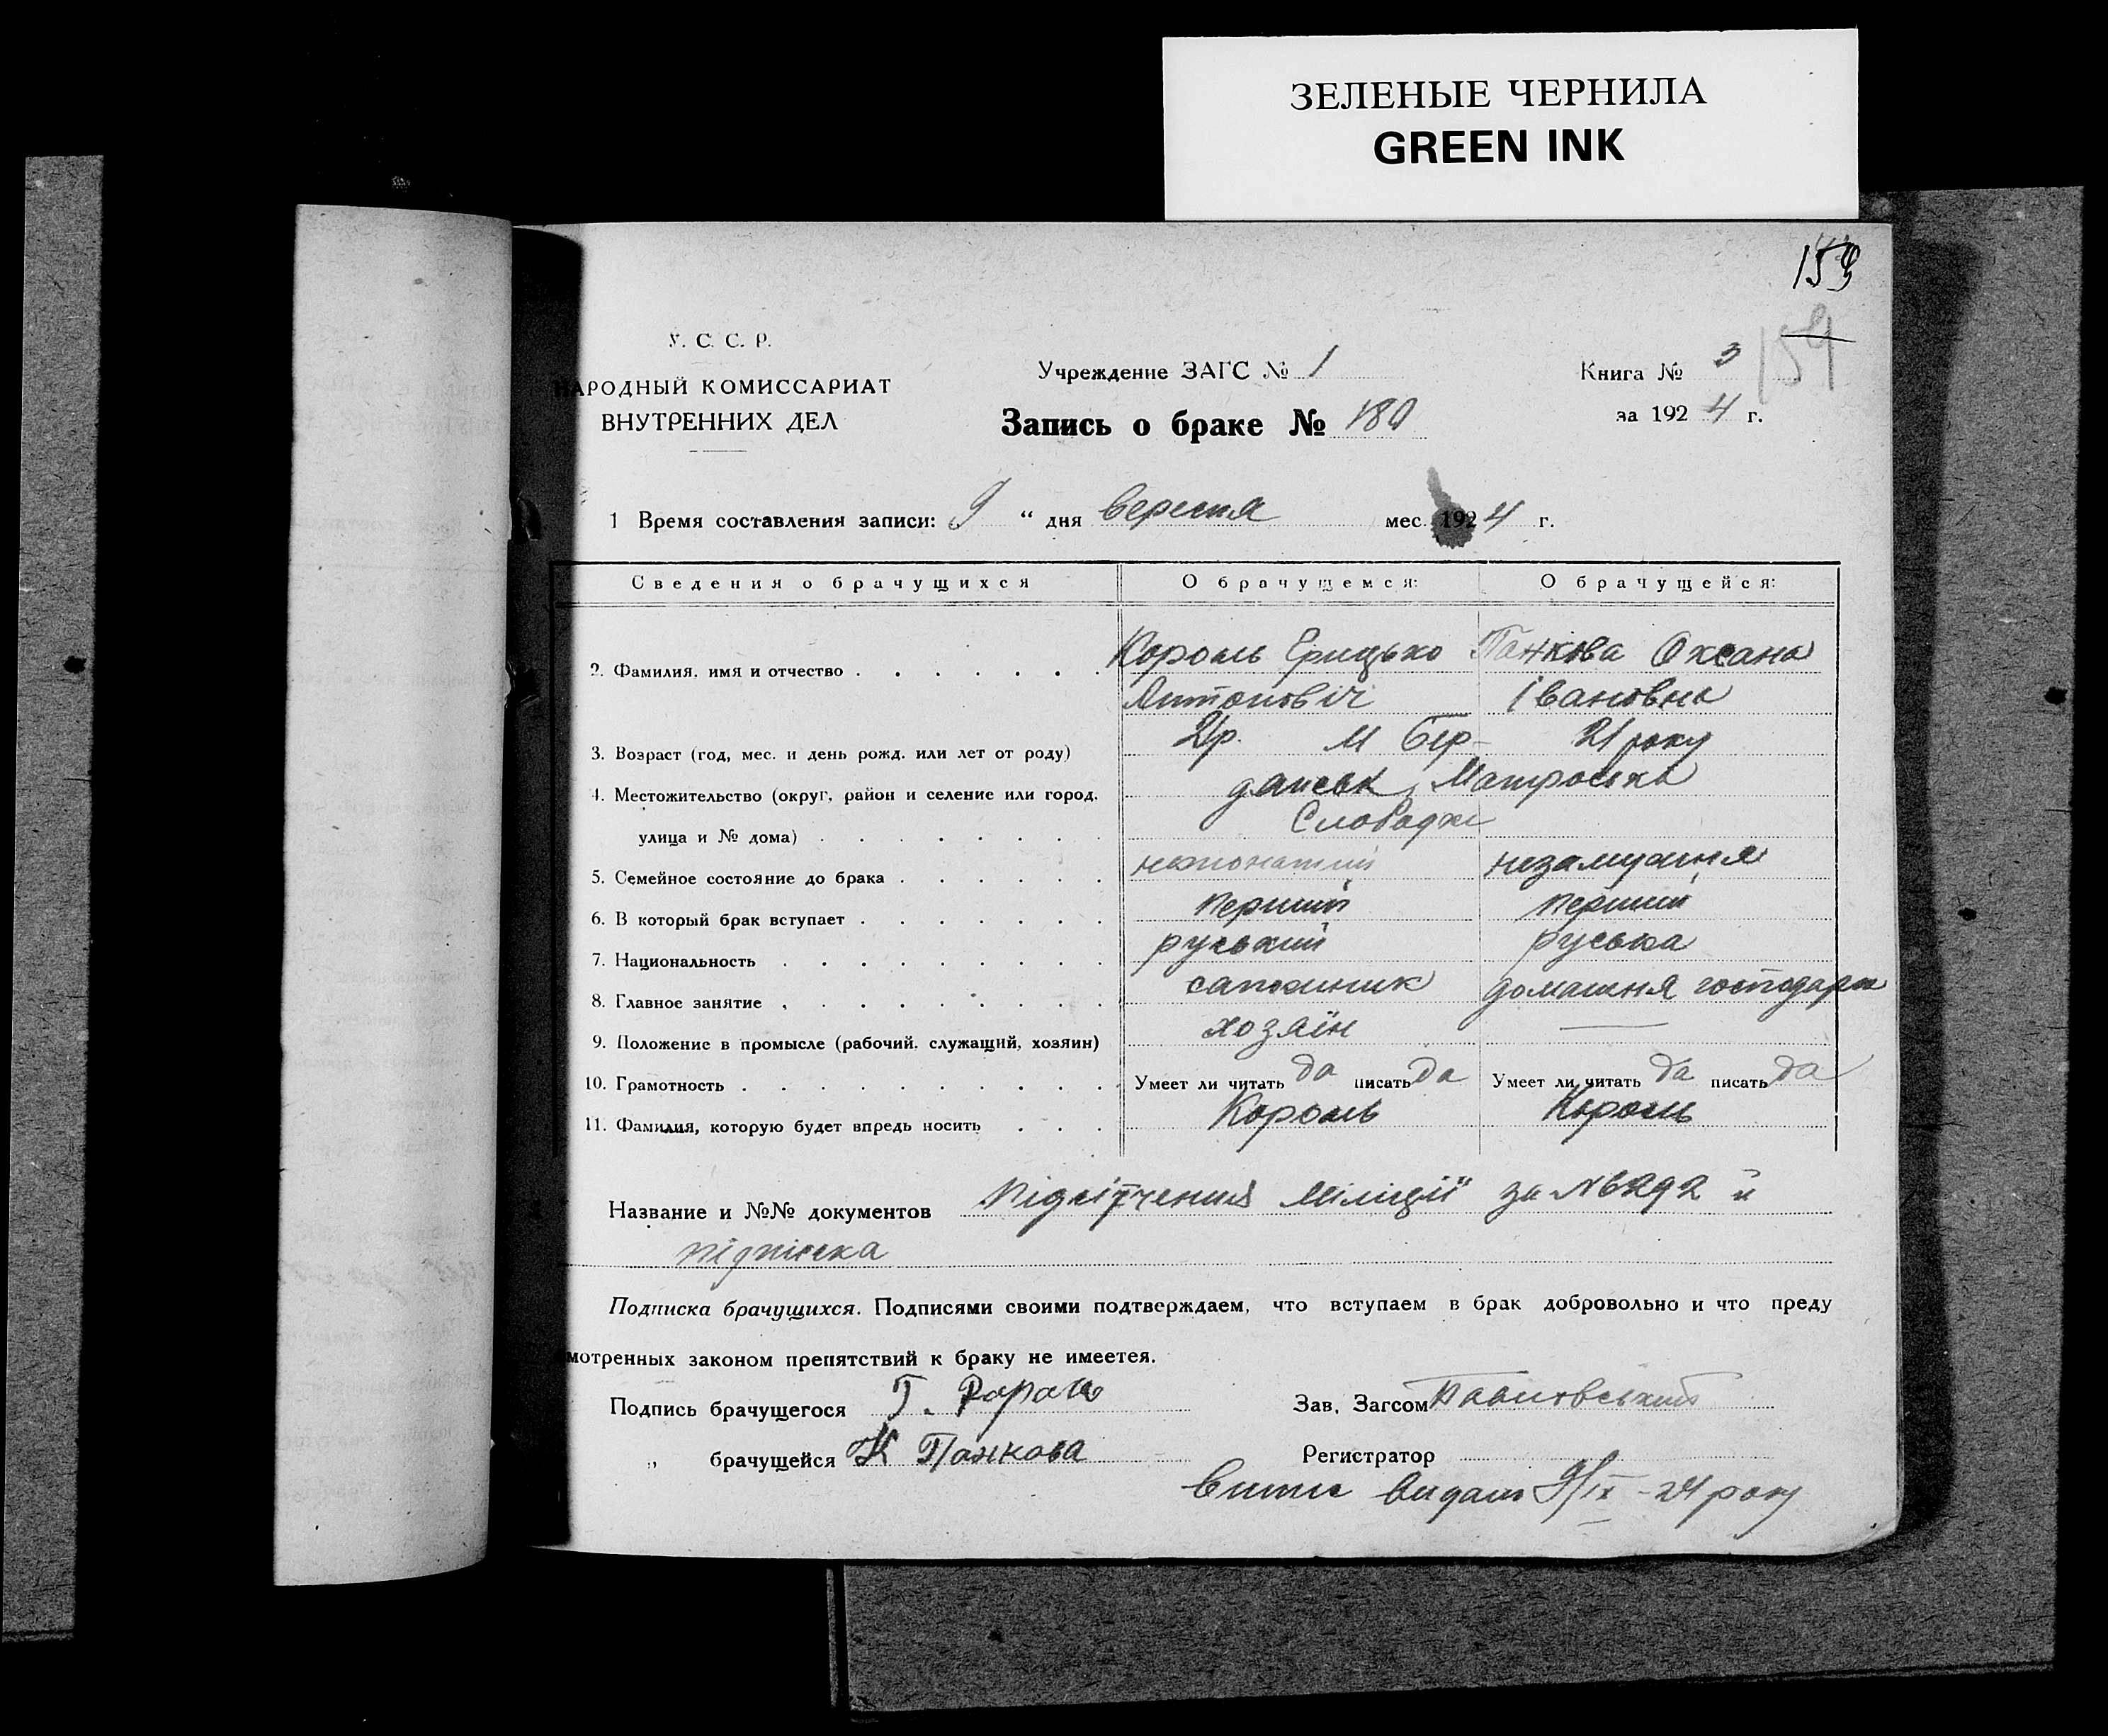 ЗЕЛЕНЫЕ ЧЕРНИЛА
GREEN INK
159
У. С. С. Р.
НАРОДНЫЙ КОМИССАРИАТ
ВНУТРЕННИХ ДЕЛ
Учреждение ЗАГС № 1
Запись о браке № 180
Книга № 3
за 1924 г.
1 Время составления записи: 9 “ дня вересня мес. 1924 г.
Сведения о брачущихся О брачущемся: О брачущейся:
2. Фамилия, имя и отчество Король Грицько Панкова Оксана
Антонович Івановна
3. Возраст (год, мес. и день рожд. или лет от роду) М Бер- 21 року
4. Местожительство (округ, район и селение или город, дянськ, Матроська
улица и № дома) Слободка
5. Семейное состояние до брака нежонатий незамужня
6. В который брак вступает перший перший
7. Национальность руський руська
8. Главное занятие сапожник домашня господарк
9. Положение в промысле (рабочий, служащий, хозяин) хозяїн —
10. Грамотность Умеет ли читать да писать да Умеет ли читать да писать да
11. Фамилия, которую будет впредь носить Король Король
Название и №№ документов Мiлiцiї за № 6292 й
пiдпiска
Подписка брачущихся. Подписями своими подтверждаем, что вступаем в брак добровольно и что преду
мотренных законом препятствий к браку не имеетея.
Подпись брачущегося Г. Король
Зав. Загсом
„ брачущейся К Панкова
Регистратор
Витяг видано 9/IX - 24 року